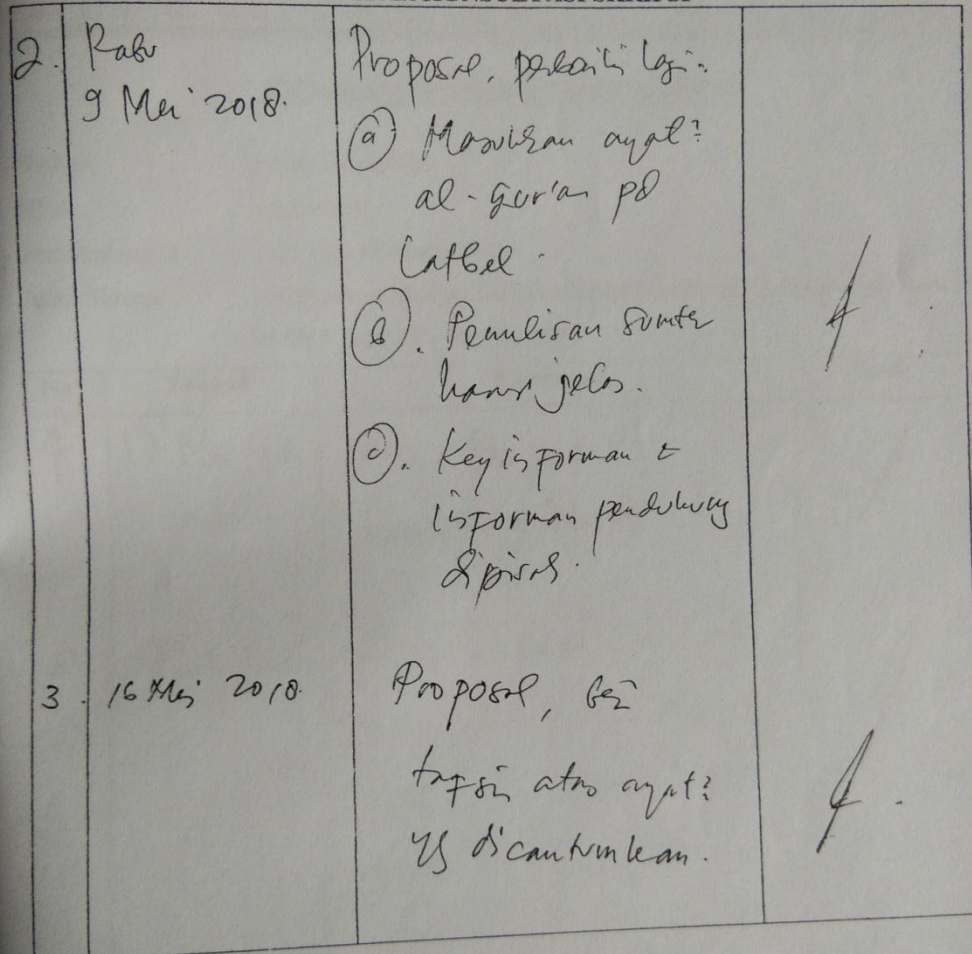 2. Rabu
9 Mei 2018.
Proposal, perbaiki lagi:
a Masukkan ayat2
al-Qur'an pd
Latbel.
b. Penulisan sumber
harus jelas.
c. Key informan &
informan pendukung
dipisah.
3. 16 Mei 2018.
Proposal, beri
tafsir atas ayat2
yg dicantumkan.